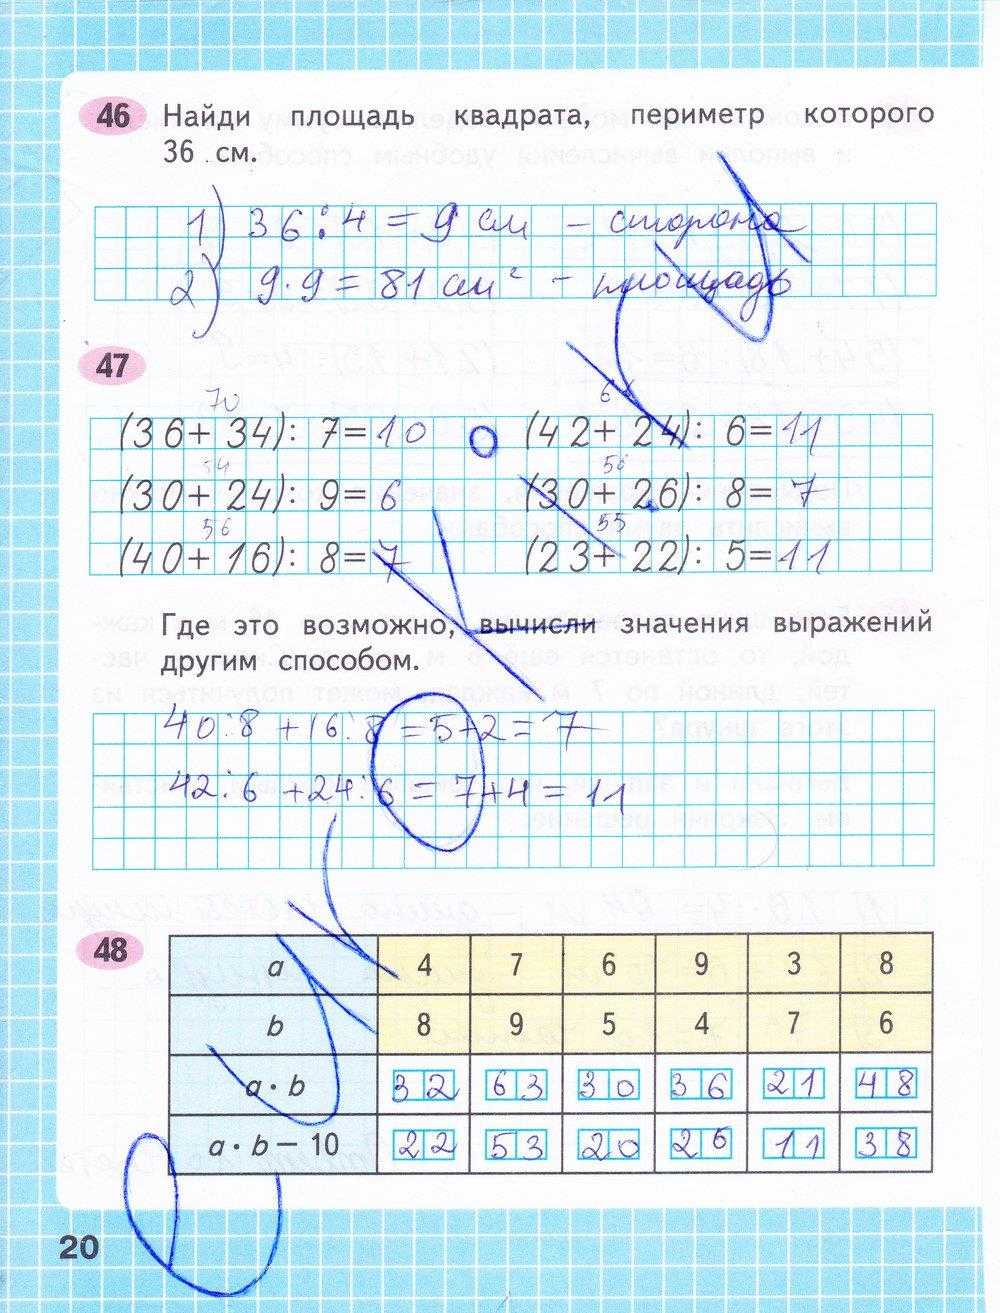 46 Найди площадь квадрата, периметр которого
36 см.
1) 36 : 4 = 9 см – сторона
2) 9 · 9 = 81 см² – площадь
47
70
(36 + 34) : 7 = 10 (42 + 24) : 6 = 11
54 56
(30 + 24) : 9 = 6 (30 + 26) : 8 = 7
56 55
(40 + 16) : 8 = 7 (23 + 22) : 5 = 11
Где это возможно, вычисли значения выражений
другим способом.
40 : 8 + 16 : 8 = 5 + 2 = 7
42 : 6 + 24 : 6 = 7 + 4 = 11
48
a 4 7 6 9 3 8
b 8 9 5 4 7 6
a · b 32 63 30 36 21 48
a · b – 10 22 53 20 26 11 38
20